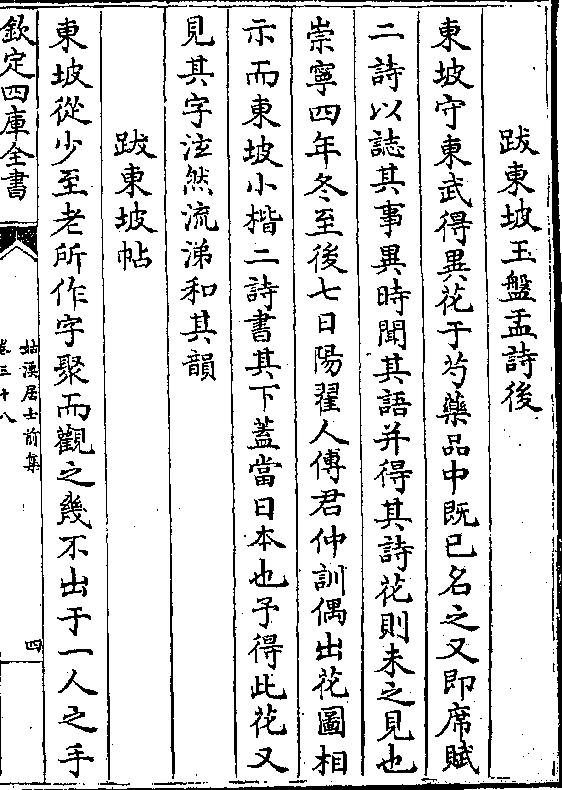 跋東坡玉盤盂詩後
東坡守東武得異花于芍藥品中既已名之又即席賦
二詩以誌其事異時聞其語并得其詩花則未之見也
崇寧四年冬至後七日陽翟人傅君仲訓偶出花圖相
示而東坡小楷二詩書其下蓋當日本也予得此花又
見其字泫然流涕和其韻
跋東坡帖
東坡從少至老所作字聚而觀之幾不出于一人之手
欽定四庫全書
姑溪居士前集
卷三十八
四